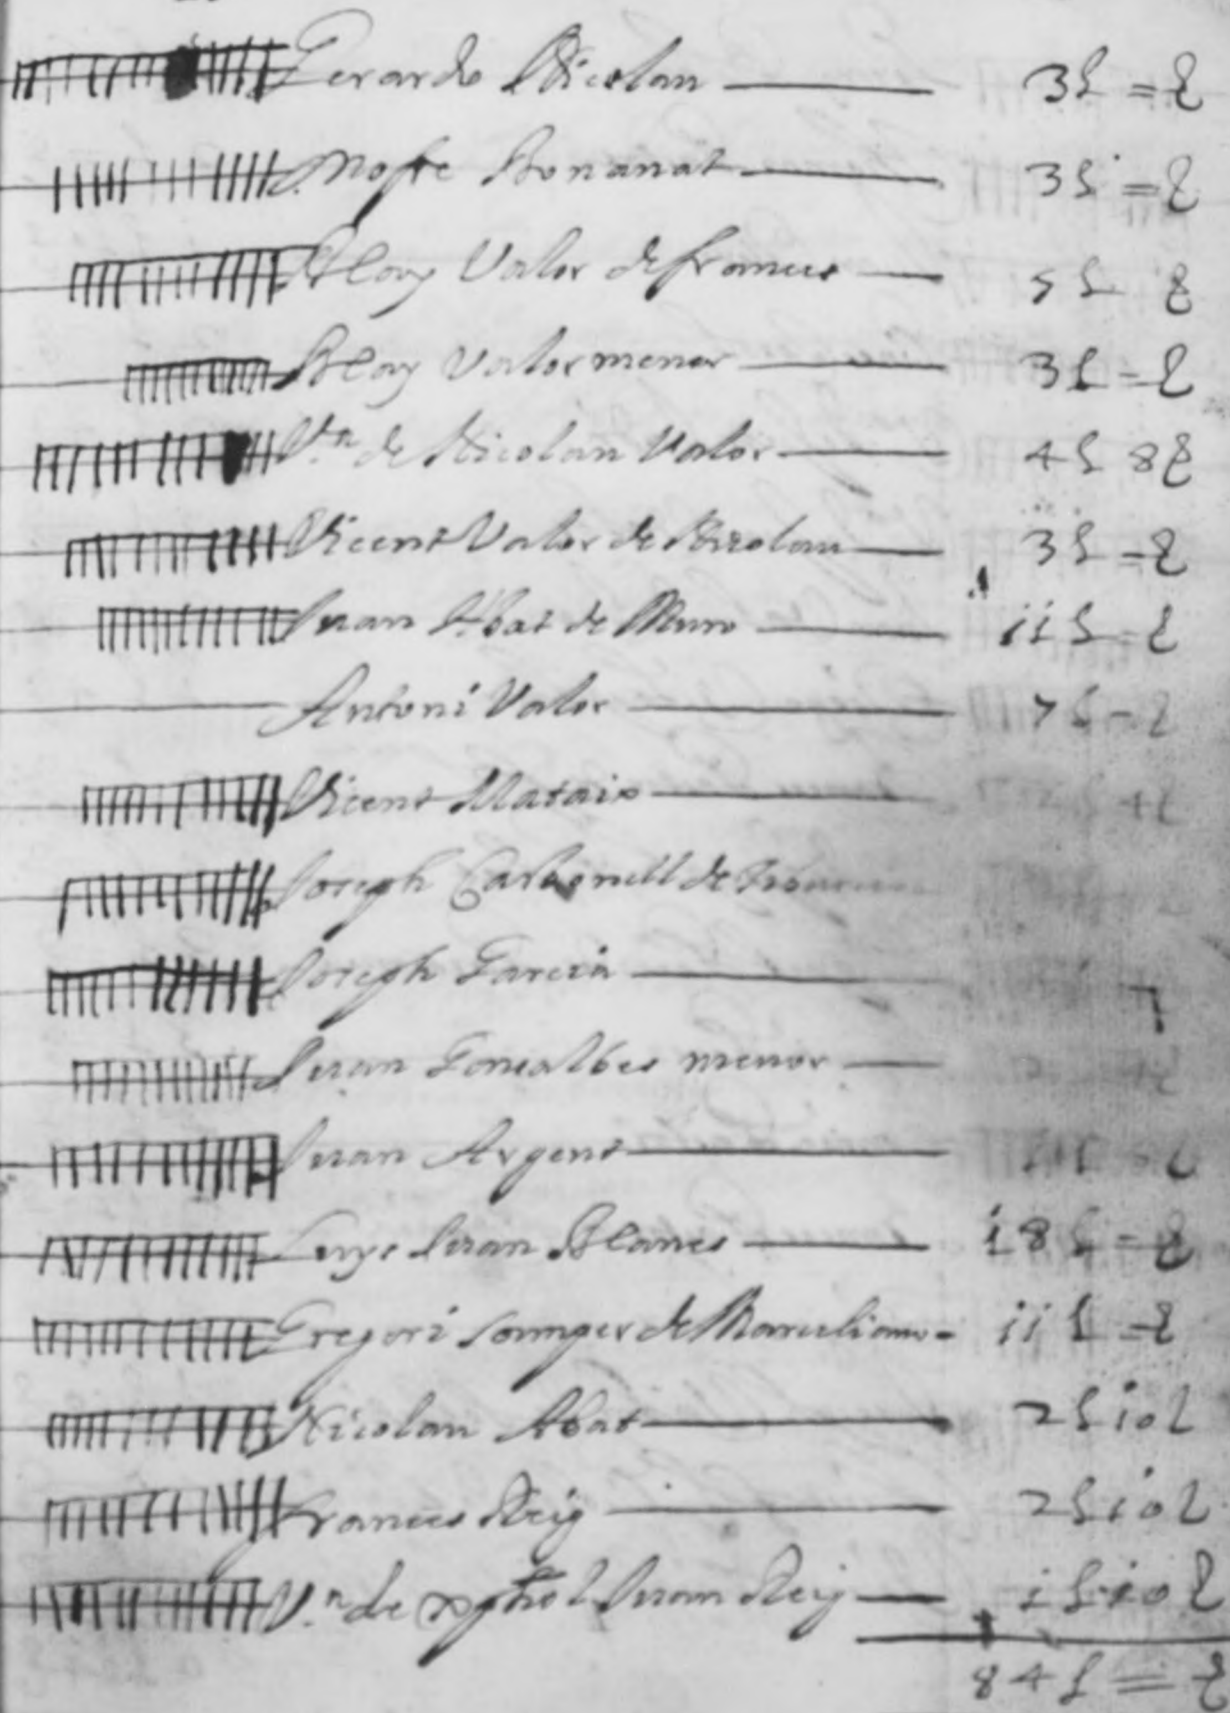 Gerardo Nicolau 3 £ = ẞ
Nofre Bonanat 3 £ = ẞ
Blay Valor de frances 5 £ ẞ
Blay Valor menor 3 £ = ẞ
V.ª de Nicolau Valor 4 £ 8 ẞ
Vicent Valor de Nicolau 3 £ = ẞ
Juan Abat de Muro ii £ = ẞ
Antoni Valor 7 £ = ẞ
Vicent Mataix
Joseph Carbonell de
Joseph Garcia
Juan Gonsalbes menor
Juan Argent
Luys Juan Blanes i8 £ = ẞ
Gregori Semper de Marceliano ii £ = ẞ
Nicolau Abat 2 £ io ẞ
Frances Reig 2 £ io ẞ
V.ª de xp̃tofol Juan Reig i £ io ẞ
84 £ = ẞ